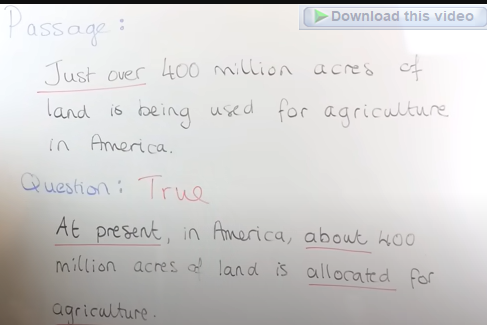 Download this video
Passage:
Just over 400 million acres of
land is being used for agriculture
in America.
Question: True
At present, in America, about 400
million acres of land is allocated for
agriculture.